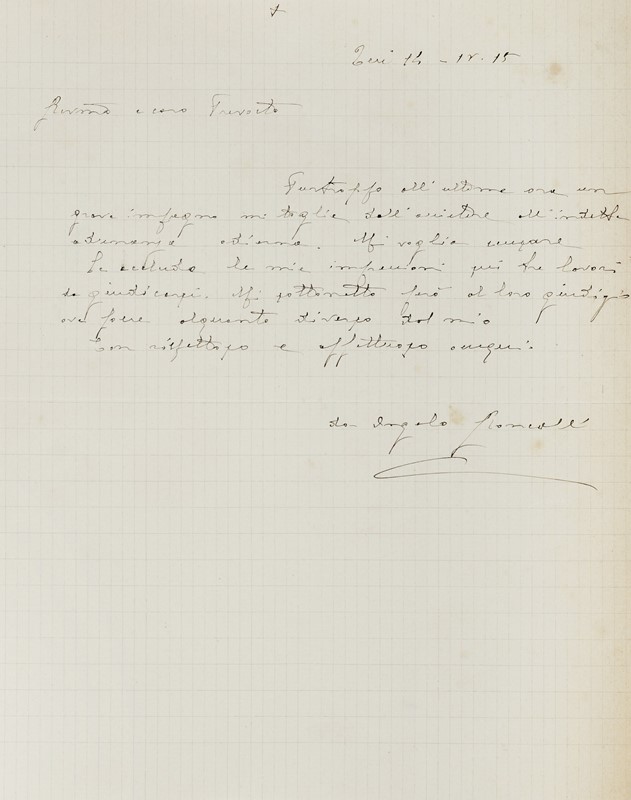 +
15
Revmo e caro Prevosto
Purtroppo all'ultima ora un
grave impegno mi toglie dall'assistere all'indetta
adunanza odierna. Mi voglia scusare
Le accludo le mie impressioni sui tre lavori
da giudicarsi. Mi sottometto però al loro giudizio
ove fosse alquanto diverso dal mio
Con rispettoso e affettuoso ossequio.
don Angelo Roncalli